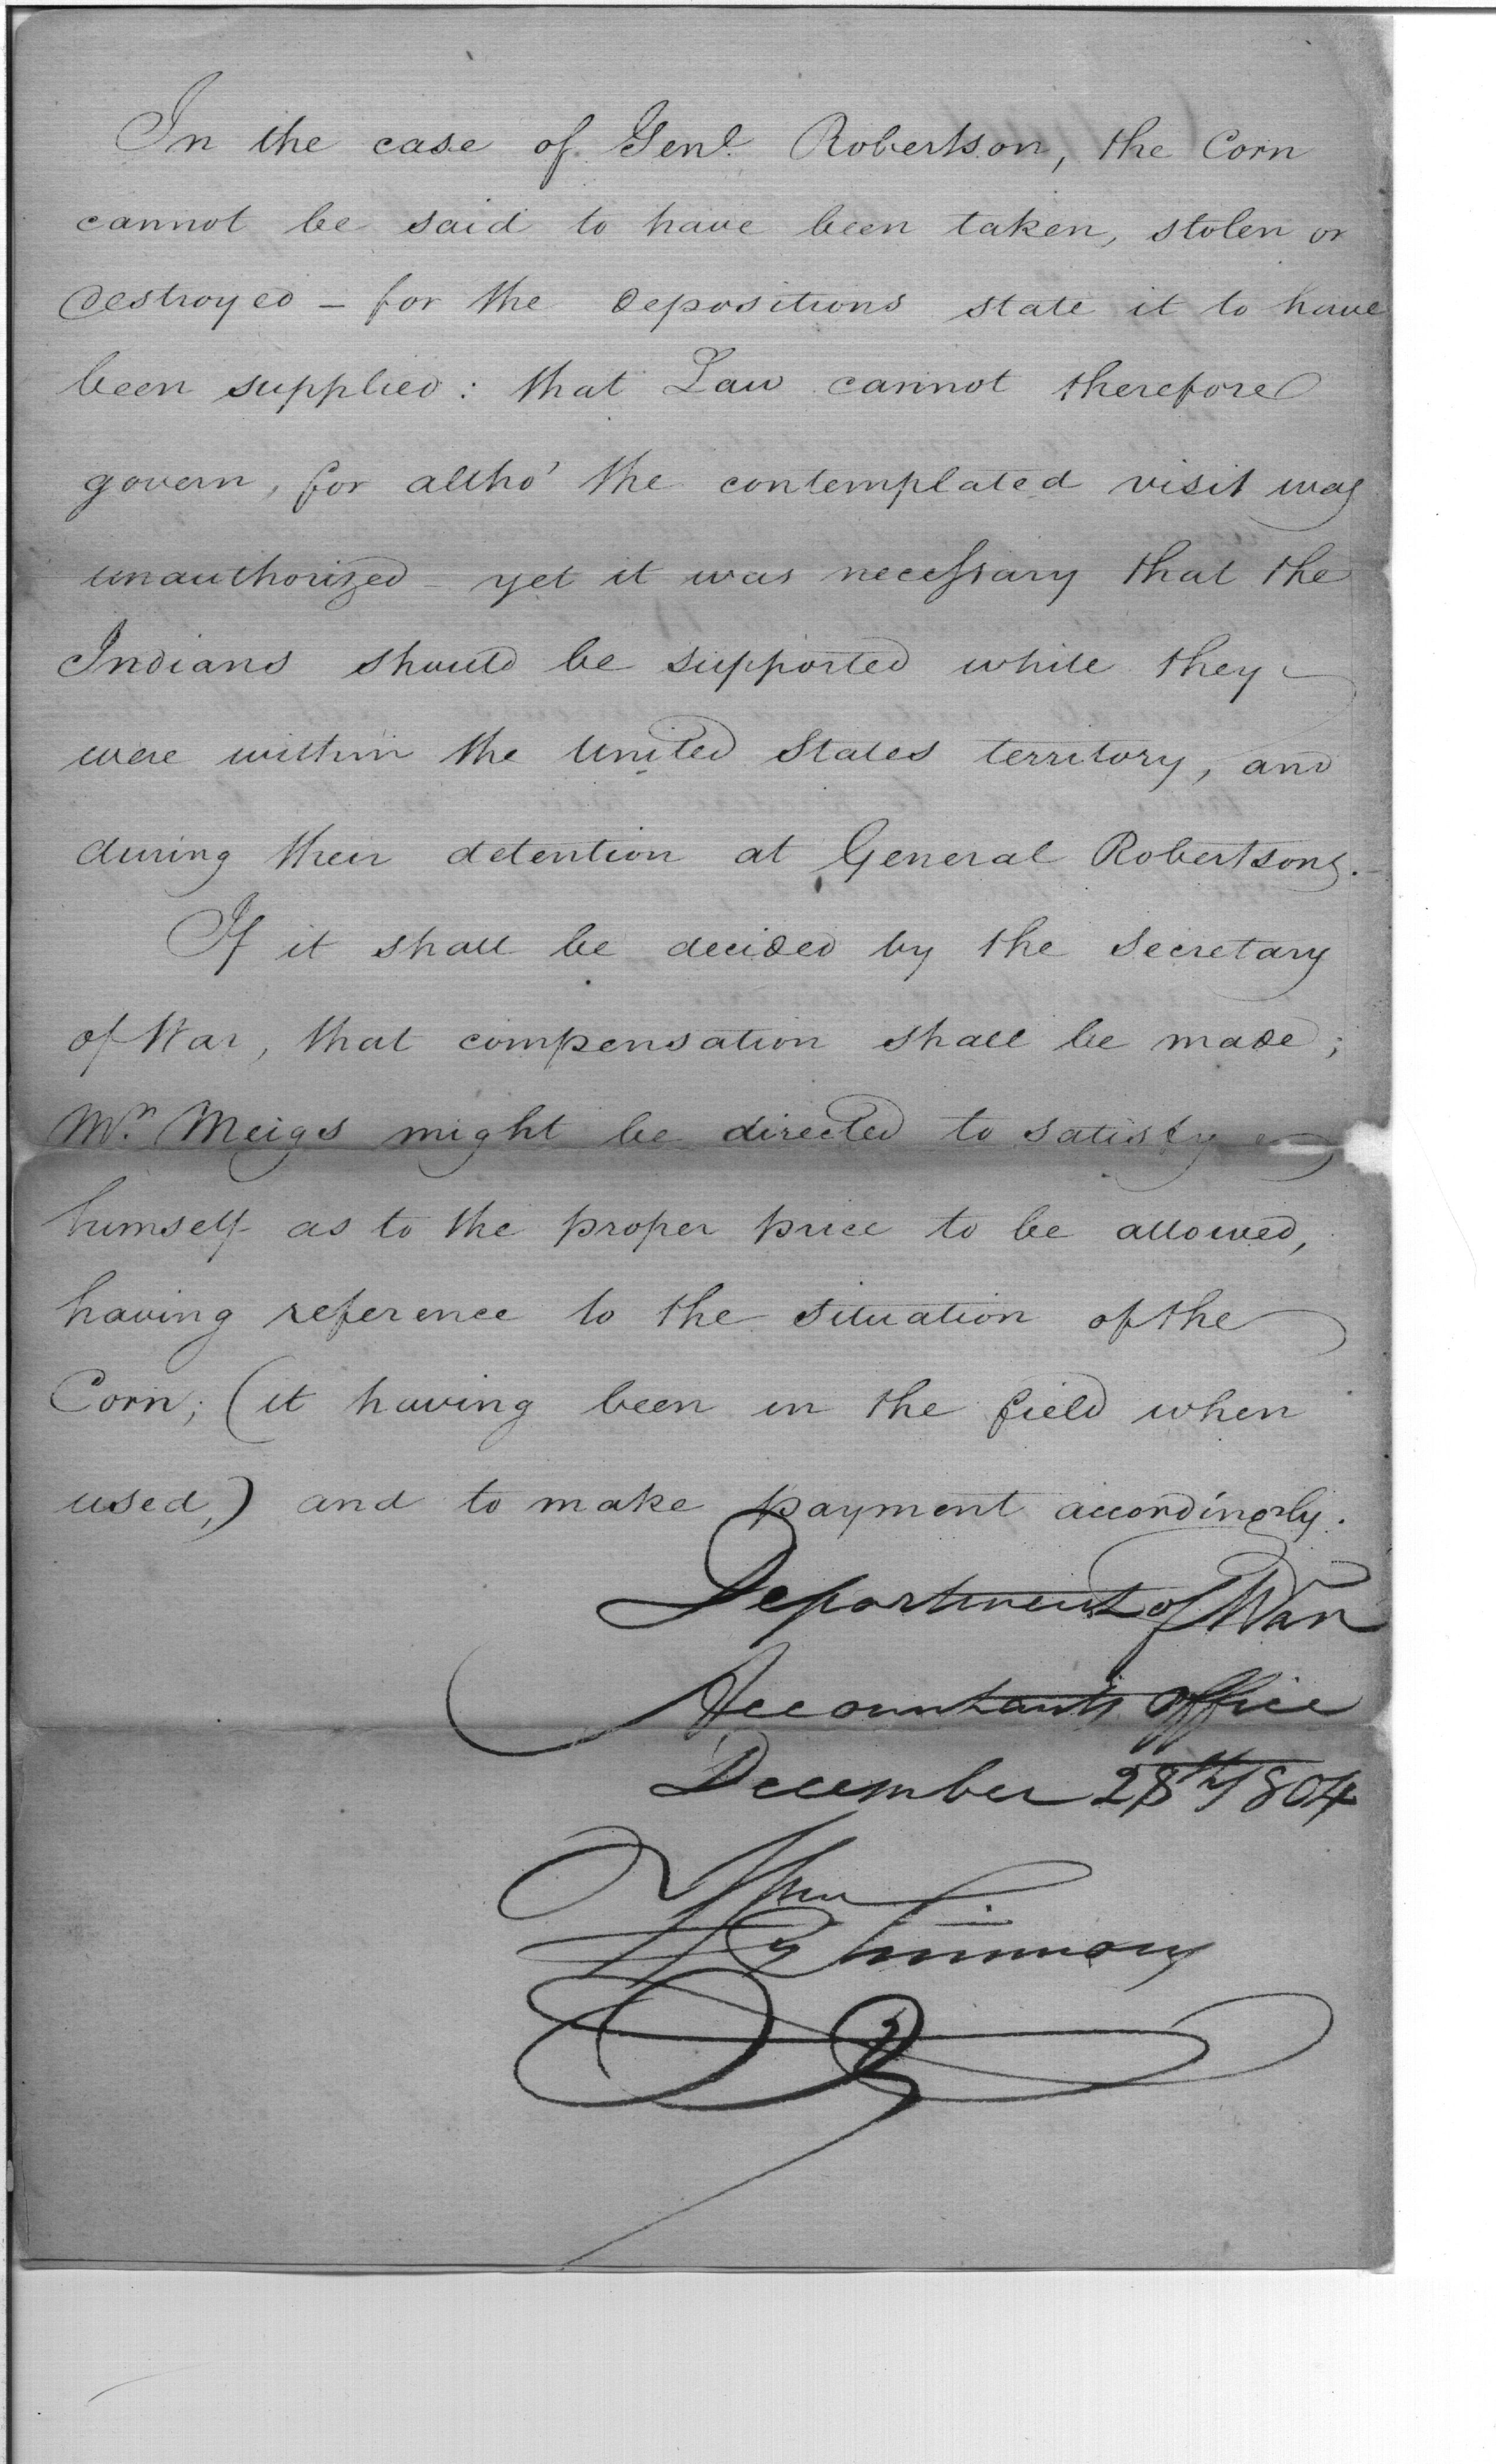 In the case of Genl. Robertson, the Corn
cannot be said to have been taken, stolen or
destroyed – for the depositions state it to have
been supplied: that Law cannot therefore
govern, for altho' the contemplated visit was
unauthorized – yet it was necessary that the
Indians should be supported while they
were within the United States territory, and
during their detention at General Robertsons.
If it shall be decided by the Secretary
of War, that compensation shall be made;
Mr. Meigs might be directed to satisfy
himself as to the proper price to be allowed,
having reference to the situation of the
Corn; (it having been in the field when
used,) and to make payment accordingly.
Department of War
Accountants Office
December 28th 1804
Wm Simmons